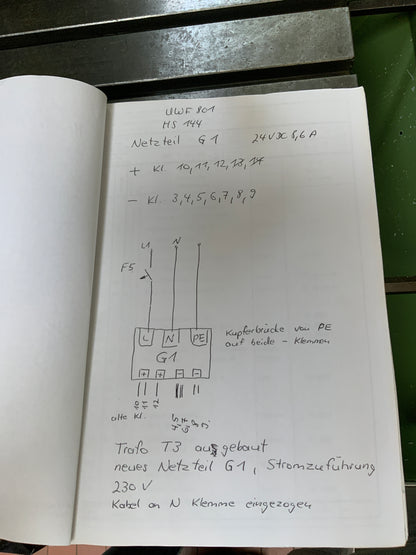 UWF 801
HS 144
Netzteil G1 24V DC 5,6 A
+ Kl. 10, 11, 12, 13, 14
- Kl. 3, 4, 5, 6, 7, 8, 9
L1 N
F5
L N PE
G1
+ + - -
Kupferbrücke von PE
auf beide - Klemmen
10 11 12
alte Kl.
Trafo T3 ausgebaut
neues Netzteil G1, Stromzuführung
230 V
Kabel an N Klemme eingezogen